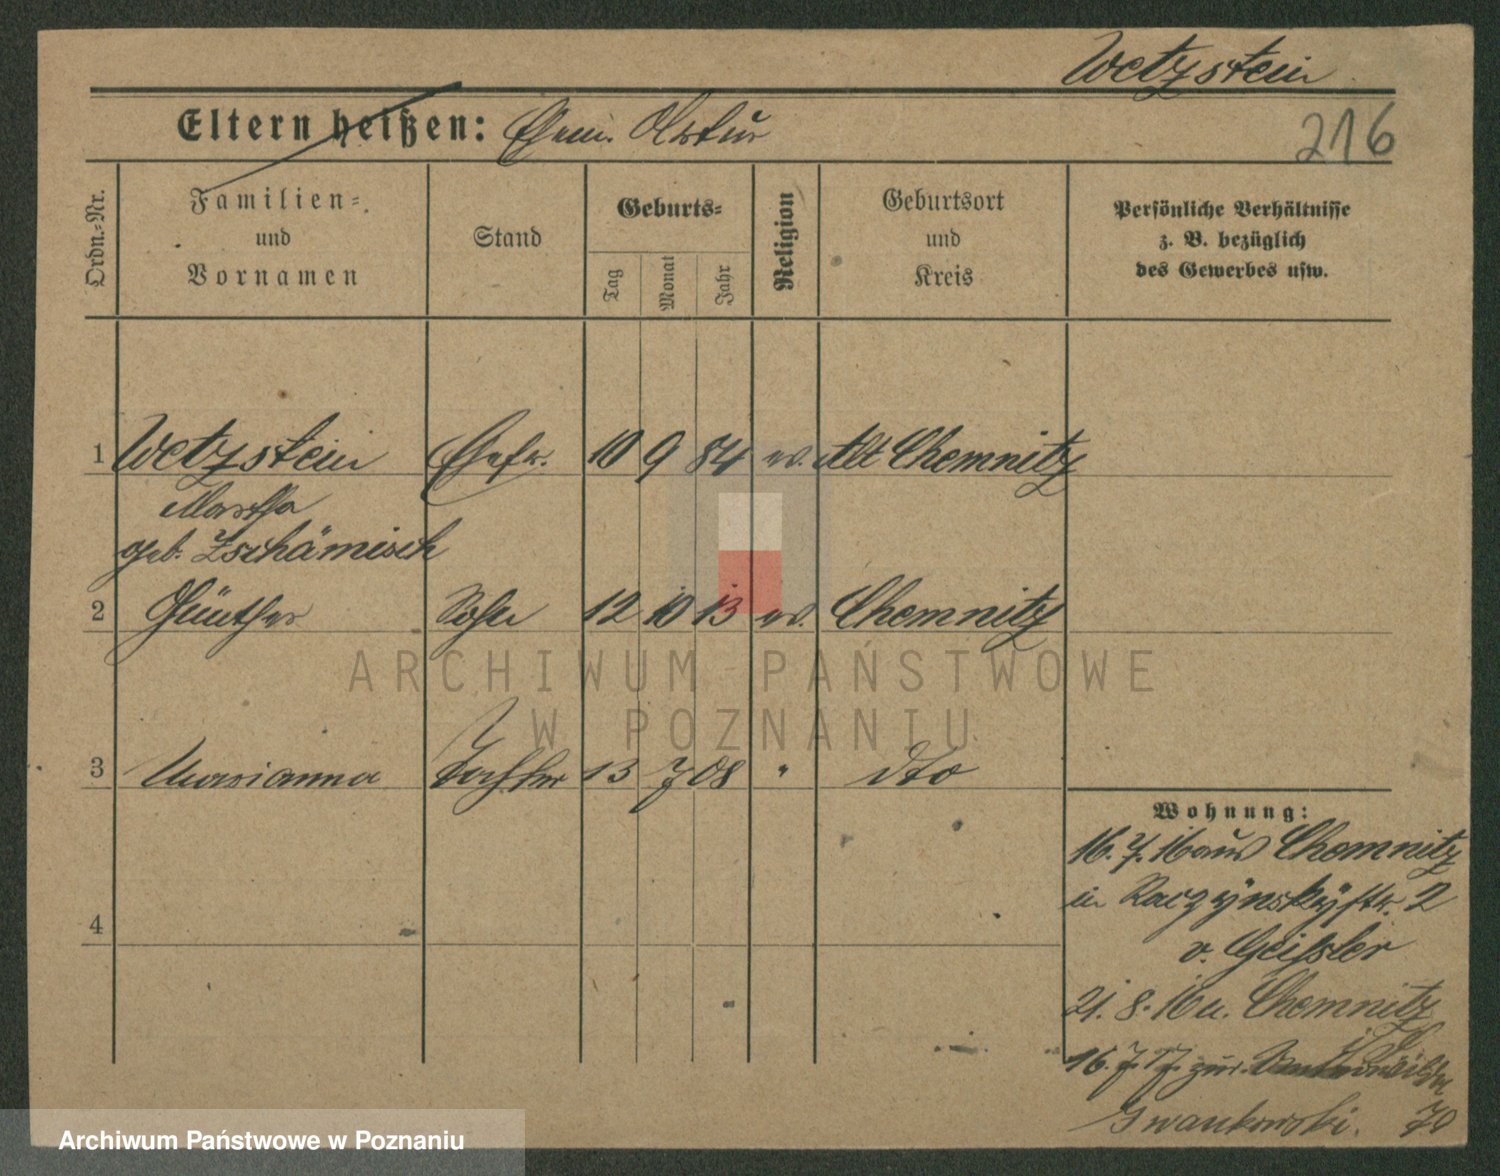 Wetzstein
216
Eltern heißen: Ehem. Artur
Ordn.-Nr.
Familien-
und
Vornamen
Stand
Geburts-
Tag
Monat
Jahr
Religion
Geburtsort
und
Kreis
Persönliche Verhältnisse
z. B. bezüglich
des Gewerbes usw.
1 Wetzstein Ehefr. 10 9 84 ev. Alt Chemnitz
Martha
geb. Zschämisch
2 Günther Sohn 12 10 13 ev. Chemnitz
3 Marianna Tochter 13 7 08 " dto
4
Wohnung:
16. 7. 16 aus Chemnitz
in Raczynskystr. 2
v. Geissler
21. 8. 16 n. Chemnitz
16. 7. 17. zur.
Gwankowski. 70
ARCHIWUM PAŃSTWOWE
W POZNANIU
Archiwum Państwowe w Poznaniu